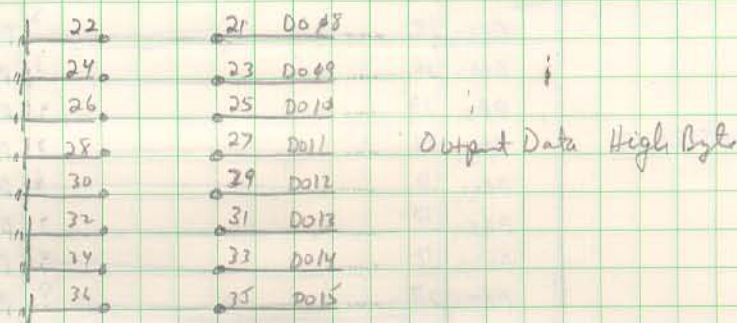 22 21 DO08
24 23 DO09
26 25 DO10
28 27 DO11 Output Data High Byte
30 29 DO12
32 31 DO13
34 33 DO14
36 35 DO15